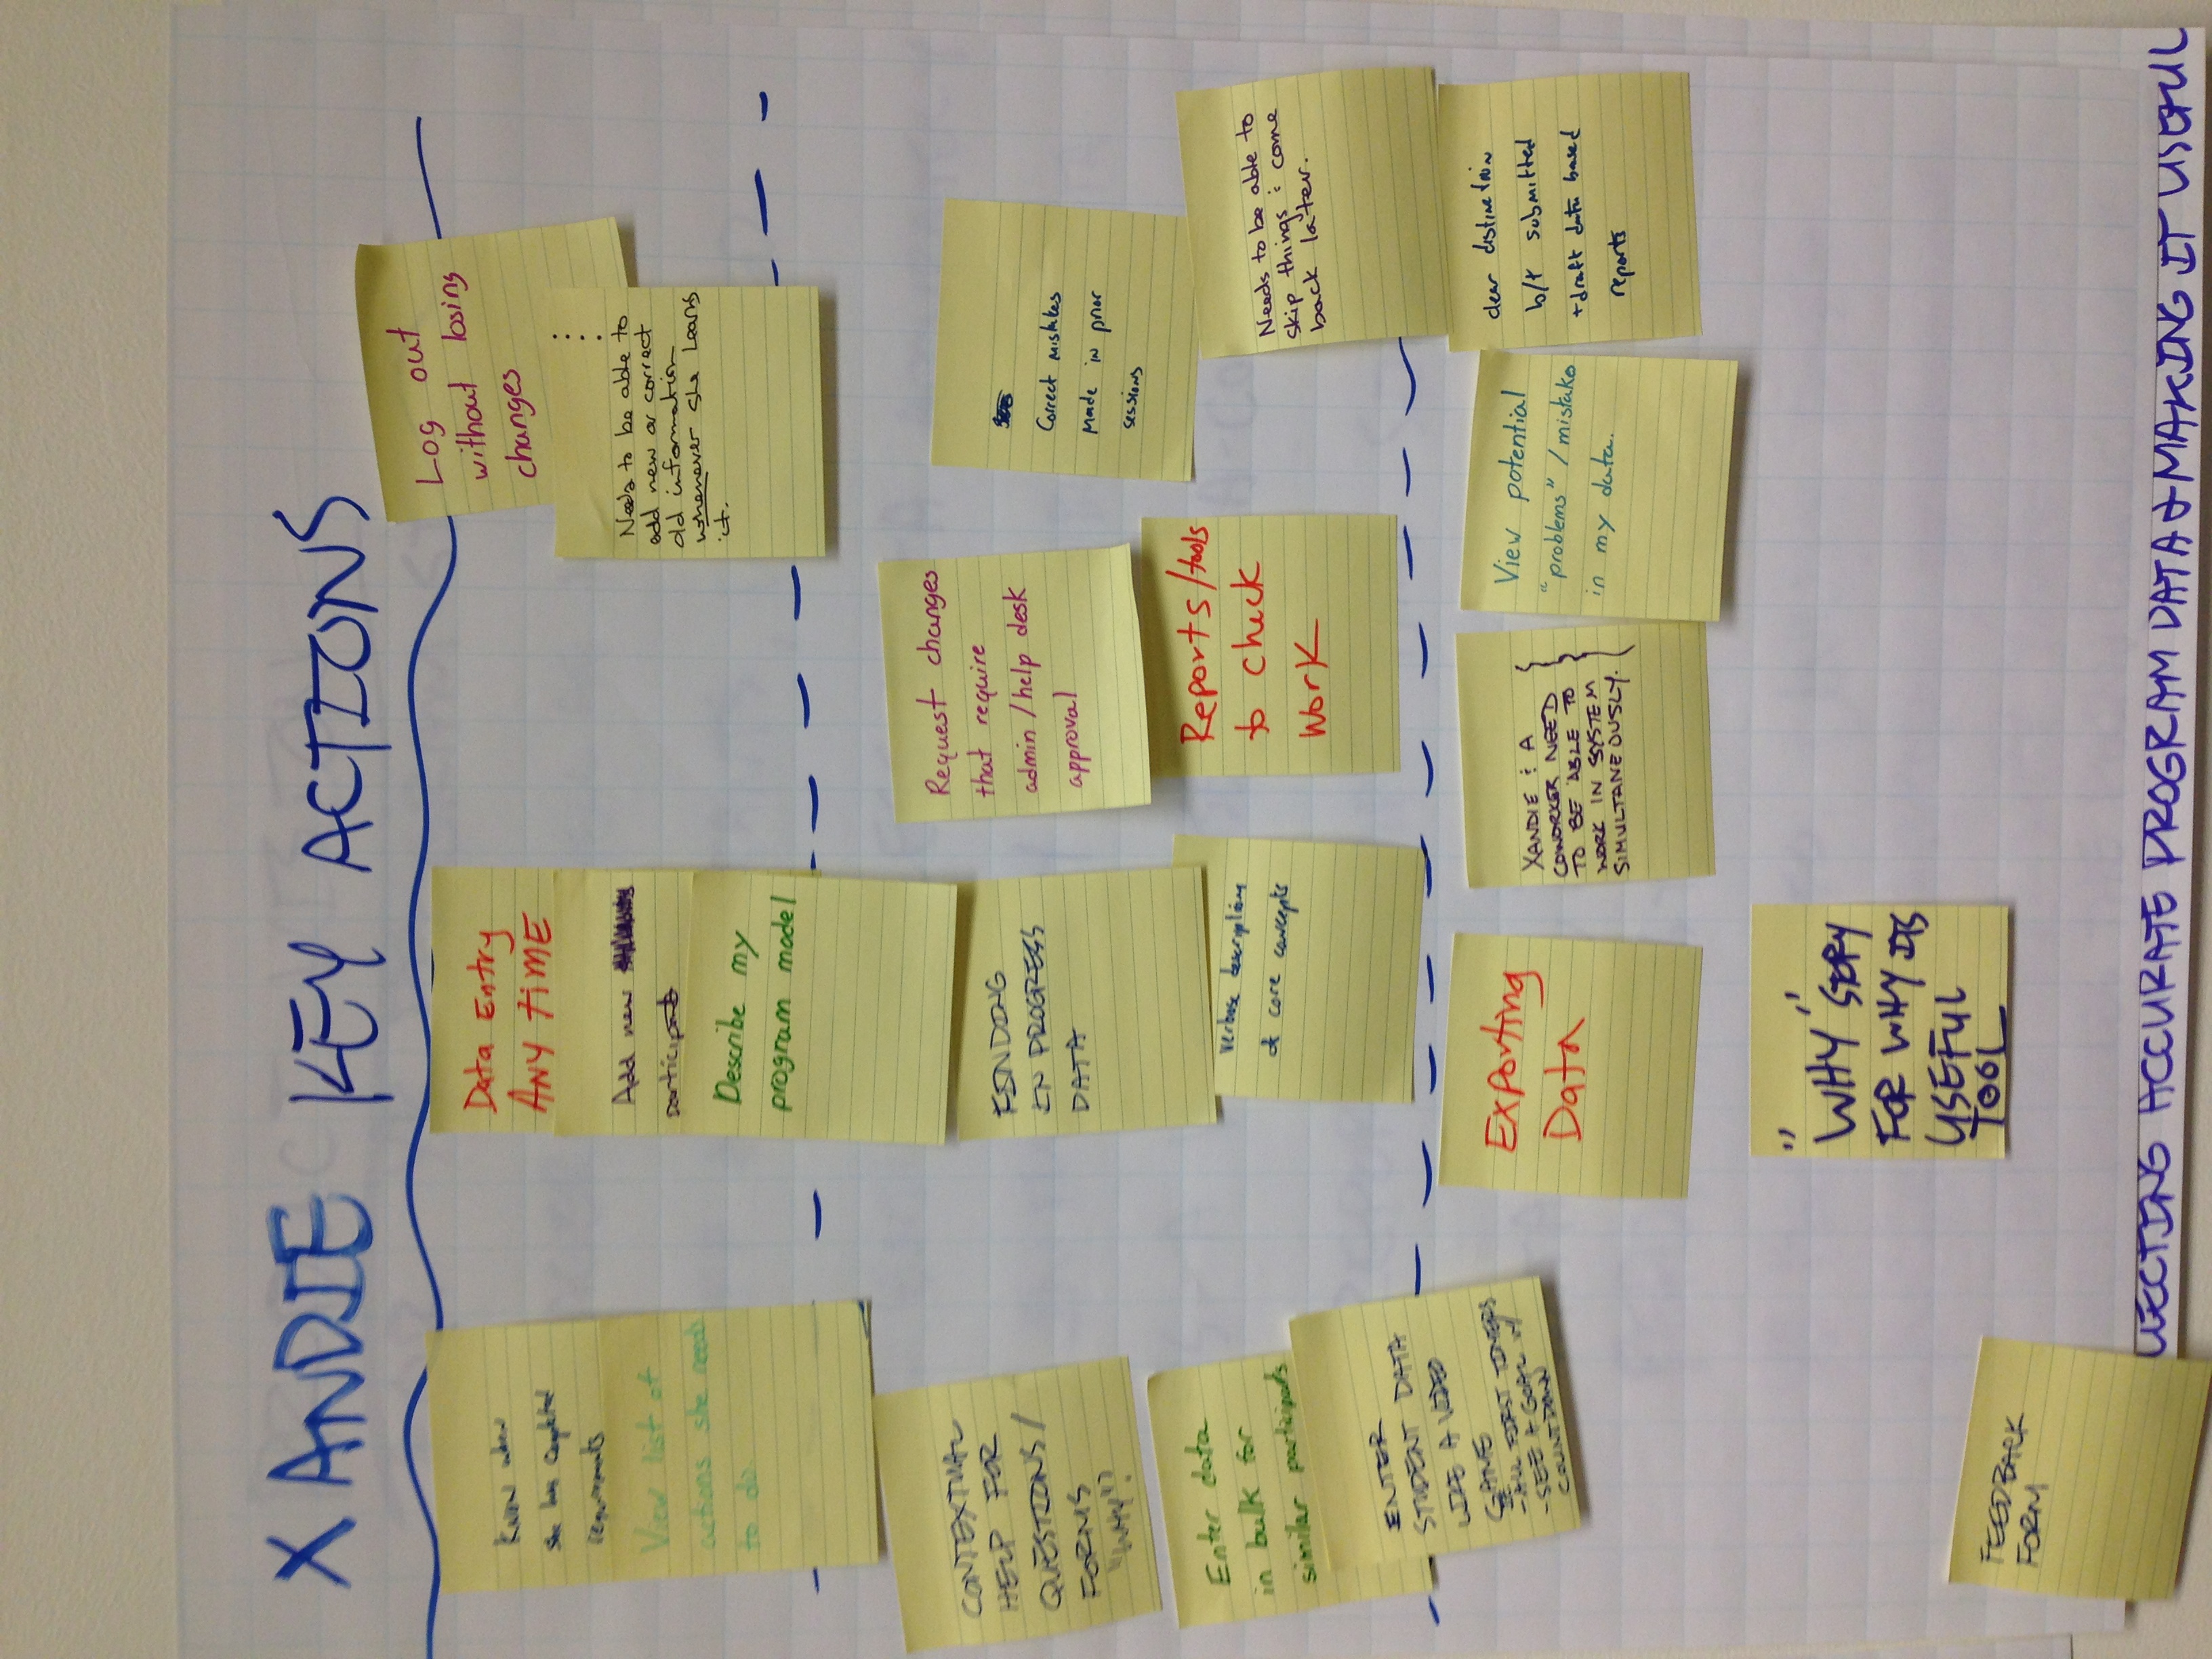 XANDIE KEY ACTIONS
Know when
she has completed
requirements
View list of
actions she needs
to do.
Data Entry
ANY TIME
Add new
participant
Describe my
program model
Log out
without losing
changes
Needs to be able to
add new or correct
old information
whenever she learns
it.
CONTEXTUAL
HELP FOR
QUESTIONS/
FORMS
"WHY"?
FINDING
IN PROGRESS
DATA
Request changes
that require
admin/help desk
approval
Correct mistakes
made in prior
sessions
Enter data
in bulk for
similar participants
verbose description
of core concepts
Reports/tools
to check
work
Needs to be able to
skip things & come
back later.
ENTER
STUDENT DATA
LIKE A VIDEO
GAME
IE
-ALL FIRST TIMERS
-SEE A GOAL W/
COUNTDOWN
Exporting
Data
XANDIE & A
COWORKER NEED
TO BE ABLE TO
WORK IN SYSTEM
SIMULTANEOUSLY.
View potential
"problems"/mistake
in my data.
clear distinction
b/t submitted
+draft data based
reports
"WHY" STORY
FOR WHY ITS
USEFUL
TOOL
FEEDBACK
FORM
LLECTING ACCURATE PROGRAM DATA & MAKING IT USEFUL